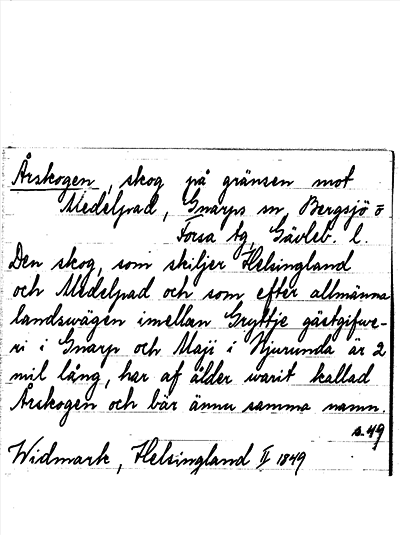 Årskogen, skog på gränsen mot
Medelpad, Gnarps sn, Bergsjö o
Forsa tg, Gävleb. l.
Den skog, som skiljer Helsingland
och Medelpad och som efter allmänna
landswägen imellan Gryttje gästgifwe-
ri i Gnarp och Maji i Njurunda är 2
mil lång, har af ålder warit kallad
Årskogen och bär ännu samma namn.
s. 49
Widmark, Helsingland II 1849